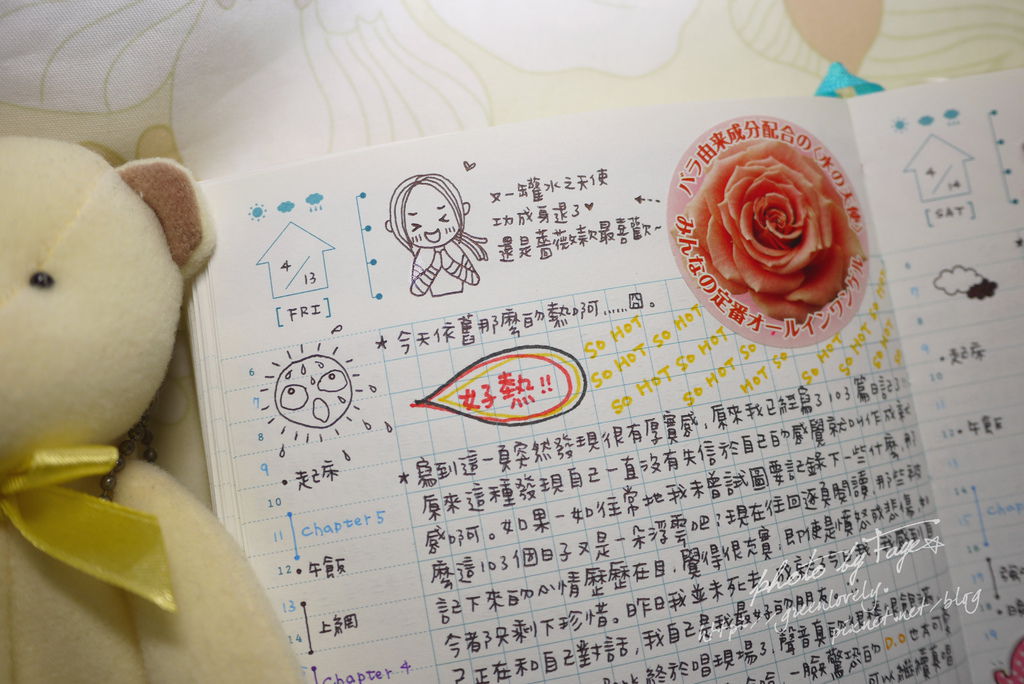 又一罐水之天使
功成身退了
還是薔薇款最喜歡~
バラ由来成分配合の〈水の天使〉
みんなの定番オールインワンゲル
4/13
[FRI]
★今天依舊那麼的熱啊……囧。
好熱!!
SO HOT
SO HOT SO HOT
SO HOT SO HOT
SO HOT SO HOT
★寫到這一頁突然發現很有厚實感，原來我已經寫了103篇日記了！
原來這種發現自己一直沒有失信於自己的感覺就叫作成就
感啊。如果一如往常地我未曾試圖要記錄下一些什麼，那
麼這103個日子又是一朵浮雲吧？現在往回逐頁閱讀，那些被
記下來的心情歷歷在目，覺得很充實，即使是憤怒或悲傷如
今都只剩下珍惜。昨日我並未死去
己正在和自己對話，我自己是我最好的朋友
終於唱現場了，聲音真的
一臉驚恐的D.O也太可
可以繼續真唱
6
7
8
9
•起床
10
11
Chapter 5
12
•午飯
13
14
上網
Chapter 4
4/14
[SAT]
6
7
9
•起床
10
12
•午飯
14
15
19
photo by Faye
https://greenlovely.
pixnet.net/blog